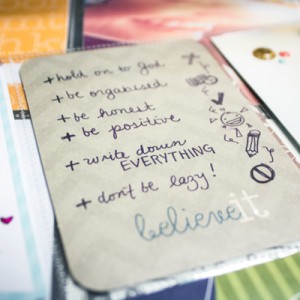 + hold on to God.
+ be organised
+ be honest
+ be positive
+ write down
EVERYTHING
+ don't be lazy!
believe it